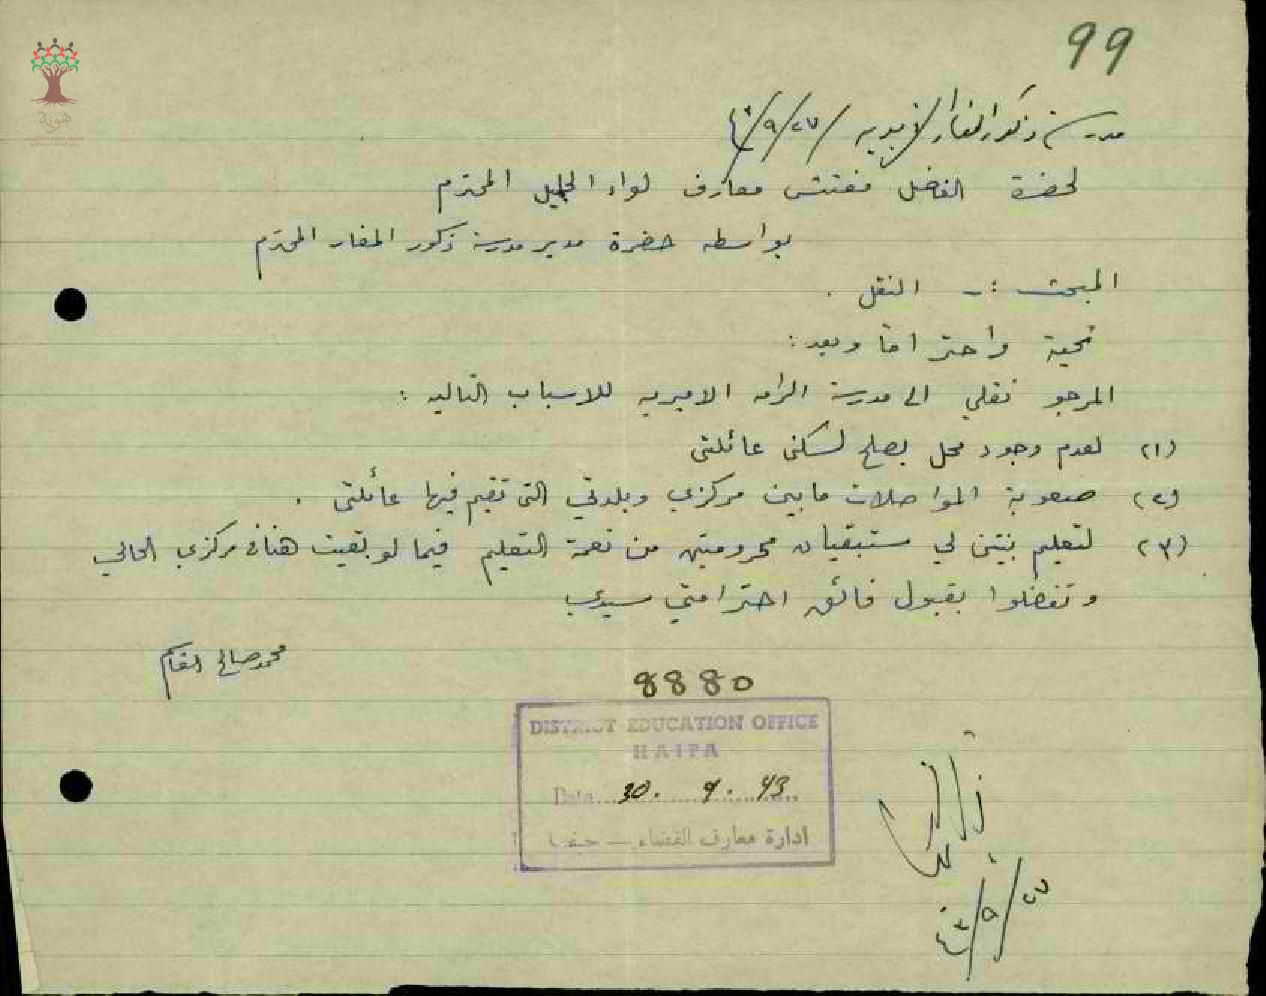 99
مدرسة ذكور المغار الاميريه ٢٧/٩/٤٣
لحضرة الفاضل مفتش معارف لواء الجليل المحترم
بواسطه حضرة مدير مدرسة ذكور المغار المحترم
المبحث :- النقل .
تحية واحتراما وبعد :
المرجو نقلي الى مدرسة الرامه الاميريه للاسباب التاليه :
(١) لعدم وجود محل يصلح لسكن عائلتي
(٢) صعوبة المواصلات ما بين مركزي وبلدتي التي تقيم فيها عائلتي .
(٣) لتعليم بنتين لي ستبقيان محرومتين من نعمة التعليم فيما لو بقيت هنا في مركزي الحالي
وتفضلوا بقبول فائق احترامي سيدي
محمد صالح القاسم
8880
DISTRICT EDUCATION OFFICE
HAIFA
Date 30. 9. 43
ادارة معارف القضاء - حيفا
٢٧/٩/٤٣
هوية